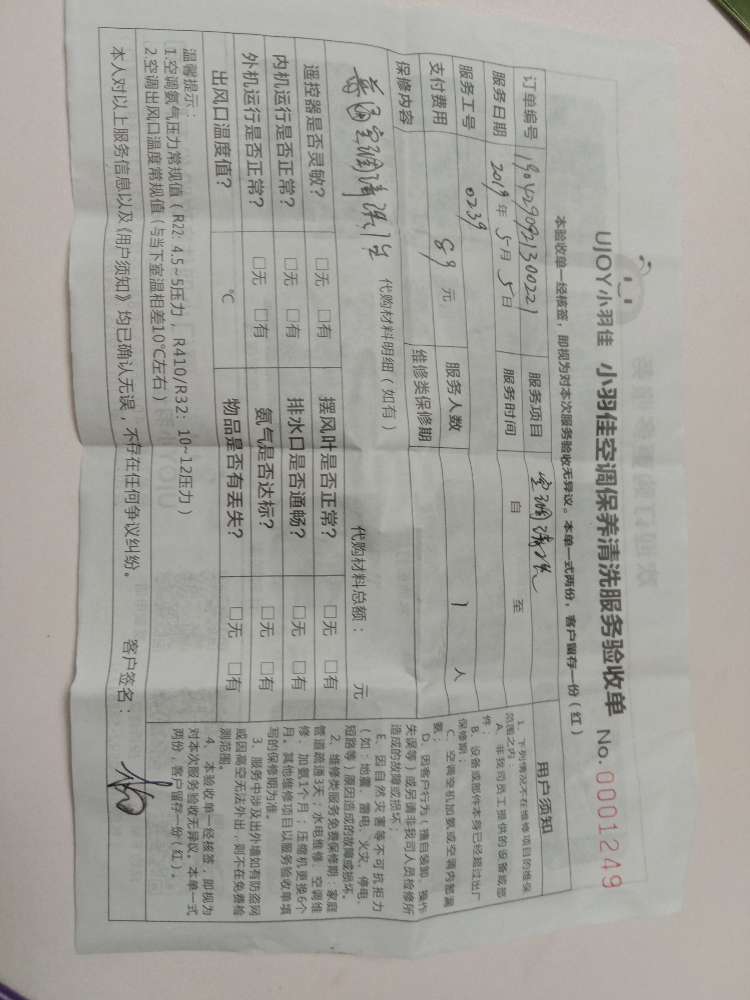 UJOY小羽佳 小羽佳空调保养清洗服务验收单 No.0001249
本验收单一经核签，即视为对本次服务验收无异议。本单一式两份，客户留存一份（红）
订单编号 1904290921300221 服务项目 空调清洗
服务日期 2019年5月5日 服务时间 自 至
服务工号 0239 服务人数 1人
支付费用 89元 维修类保修期
保修内容
普通空调清洗1台
代购材料明细（如有） 代购材料总额： 元
遥控器是否灵敏？ □无 □有 摆风叶是否正常？ □无 □有
内机运行是否正常？ □无 □有 排水口是否通畅？ □无 □有
外机运行是否正常？ □无 □有 氨气是否达标？ □无 □有
出风口温度值？ ℃ 物品是否有丢失？ □无 □有
温馨提示：
1.空调氨气压力常规值（R22: 4.5~5压力，R410/R32: 10~12压力）
2.空调出风口温度常规值（与当下室温相差10℃左右）
本人对以上服务信息以及《用户须知》均已确认无误，不存在任何争议纠纷。 客户签名：
用户须知
1、下列情况不在维修项目的维保
范围之内：
A、非我司员工提供的设备或部
件；
B、设备或部件本身已经超过出厂
保修期；
C、空调空机加氨或空调内管漏
氨；
D、因客户行为（擅自装卸、操作
失误等）或另请非我司人员检修所
造成的故障或损坏；
E、因自然灾害等不可抗拒力
（如：地震、雷电、火灾、停电、
短路等）原因造成的故障或损坏。
2、维修类服务免费保修期：家庭
管道疏通3天；水电维修、空调维
修、加氨1个月；压缩机更换6个
月。其他维修项目以服务验收单填
写的保修期为准。
3、服务中涉及出外墙如有防盗网
或因高空无法外出，则不在免费检
测范围。
4、本验收单一经核签，即视为
对本次服务验收无异议。本单一式
两份，客户留存一份（红）。